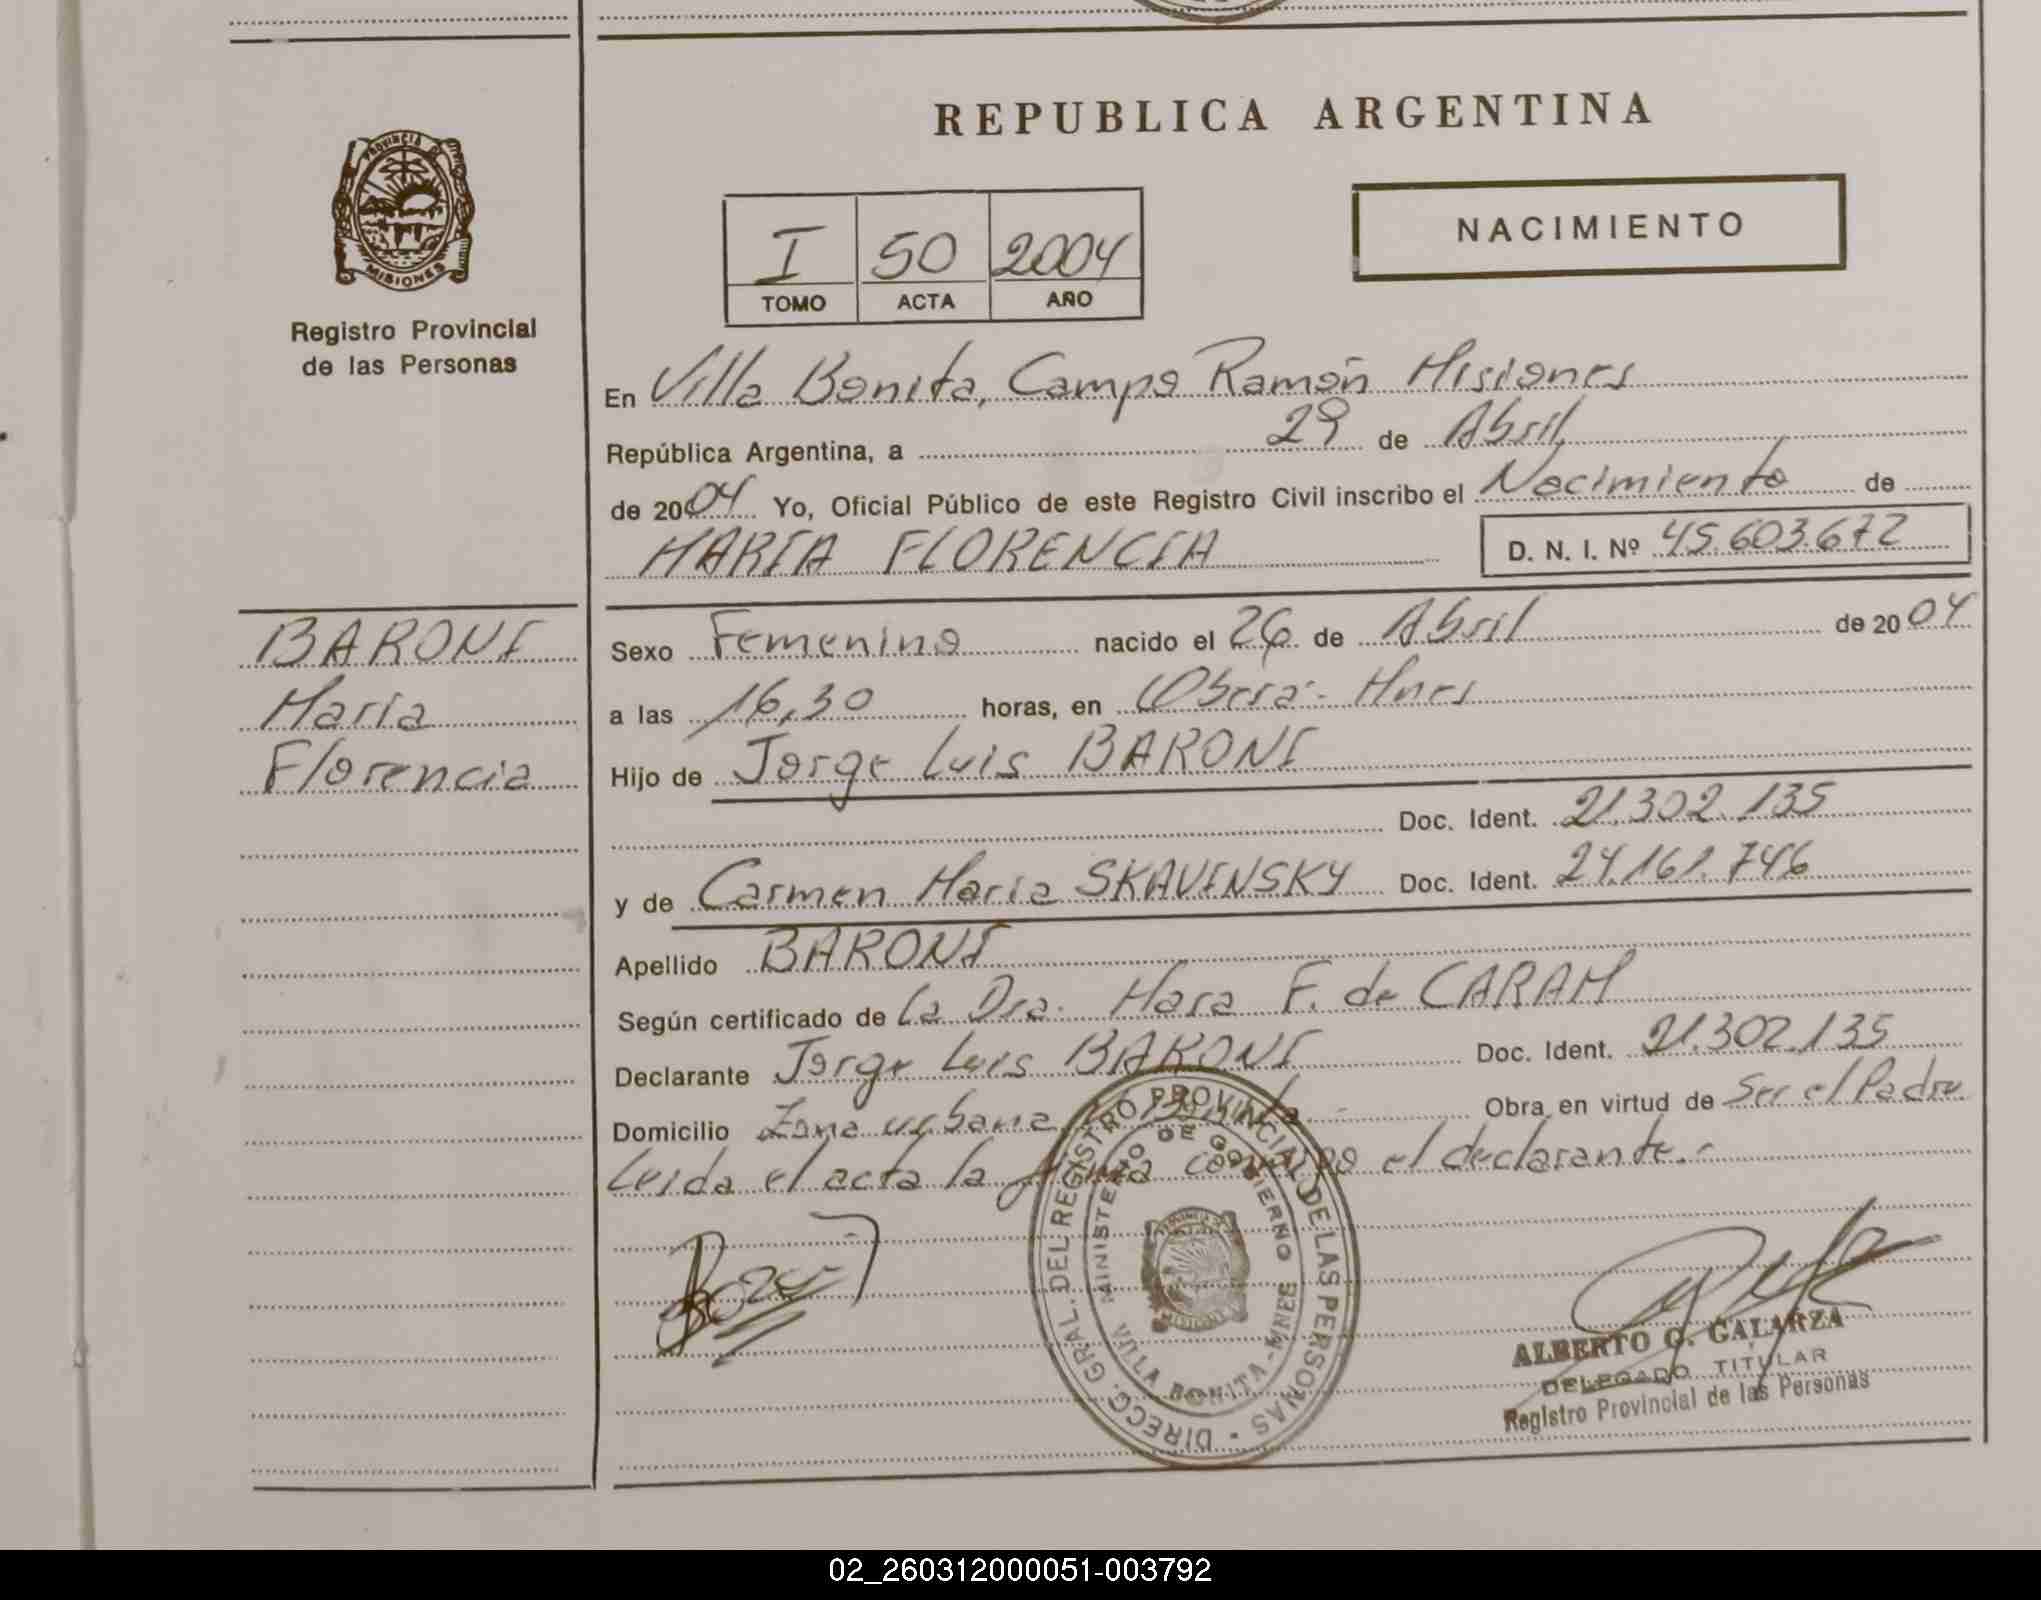 REPUBLICA ARGENTINA
PROVINCIA DE
MISIONES
Registro Provincial
de las Personas
I 50 2004
TOMO ACTA AÑO
NACIMIENTO
En Villa Bonita, Campo Ramón Misiones
República Argentina, a 29 de Abril
de 2004 Yo, Oficial Público de este Registro Civil inscribo el Nacimiento de
MARIA FLORENCIA D. N. I. Nº 45.603.672
BARONI
María
Florencia
Sexo Femenino nacido el 26 de Abril de 2004
a las 16,30 horas, en Oberá - Mnes
Hijo de Jorge Luis BARONI
Doc. Ident. 21.302.135
y de Carmen Maria SKAVINSKY Doc. Ident. 24.161.746
Apellido BARONI
Según certificado de la Dra. Mara F. de CARAM
Declarante Jorge Luis BARONI Doc. Ident. 21.302.135
Domicilio Zona urbana Obra en virtud de Ser el Padre
Leida el acta la firma conmigo el declarante.-
DIRECC. GRAL. DEL REGISTRO PROVINCIAL DE LAS PERSONAS
MINISTERIO DE GOBIERNO
VILLA BONITA - MNES
ALBERTO O. GALARZA
DELEGADO TITULAR
Registro Provincial de las Personas
02_260312000051-003792